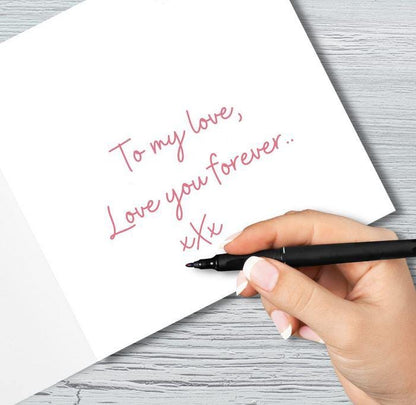 To my love,
Love you forever..
xXx